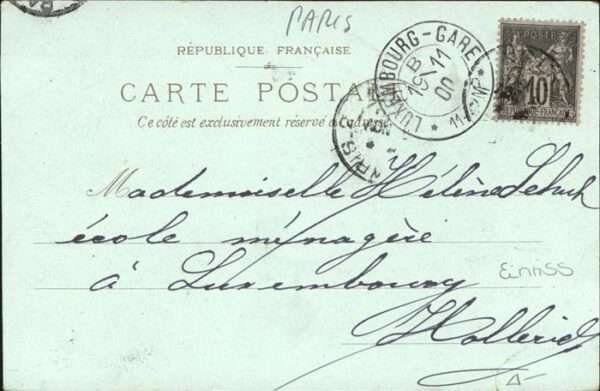 PARIS
RÉPUBLIQUE FRANÇAISE
CARTE POSTALE
Ce côté est exclusivement réservé à l'adresse
LUXEMBOURG-GARE
B
19/11
00
POSTE
10
PARIS
Mademoiselle Hélène Schuh
école ménagère
à Luxembourg
Einriss
Hollerich